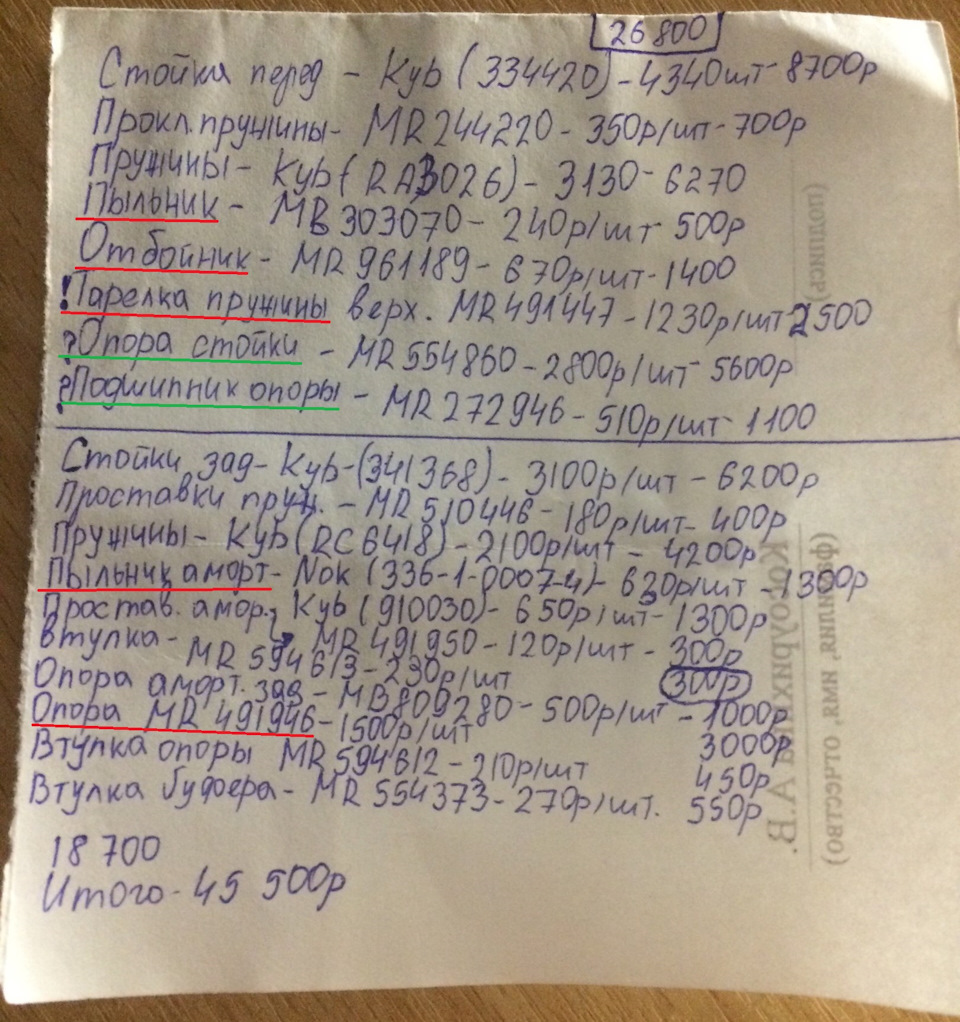 26 800
Стойка перед - Kyb (334420) - 4340шт - 8700р
Прокл. пружины - MR 244220 - 350р/шт - 700р
Пружины - Kyb (RA3026) - 3130 - 6270
Пыльник - MB 303070 - 240р/шт 500р
Отбойник - MR 961189 - 670р/шт - 1400
! Тарелка пружины верх. MR 491447 - 1230р/шт 2500
? Опора стойки - MR 554860 - 2800р/шт 5600р
? Подшипник опоры - MR 272946 - 510р/шт 1100
Стойки зад - Kyb - (341368) - 3100р/шт - 6200р
Проставки пруж. - MR 510446 - 180р/шт - 400р
Пружины - Kyb (RC6418) - 2100р/шт - 4200р
Пыльник аморт - Nok (336-1-0007-4) - 630р/шт - 1300р
Простав. амор. Kyb (910030) - 650р/шт - 1300р
Втулка - MR 491950 - 120р/шт - 300р
MR 594613 - 230р/шт 300р
Опора аморт. зад - MB809280 - 500р/шт - 1000р
Опора MR 491946 - 1500р/шт 3000р
Втулка опоры MR 594612 - 210р/шт 450р
Втулка буфера - MR 554373 - 270р/шт. 550р
18 700
Итого - 45 500р
(подпись)
(фамилия, имя, отчество)